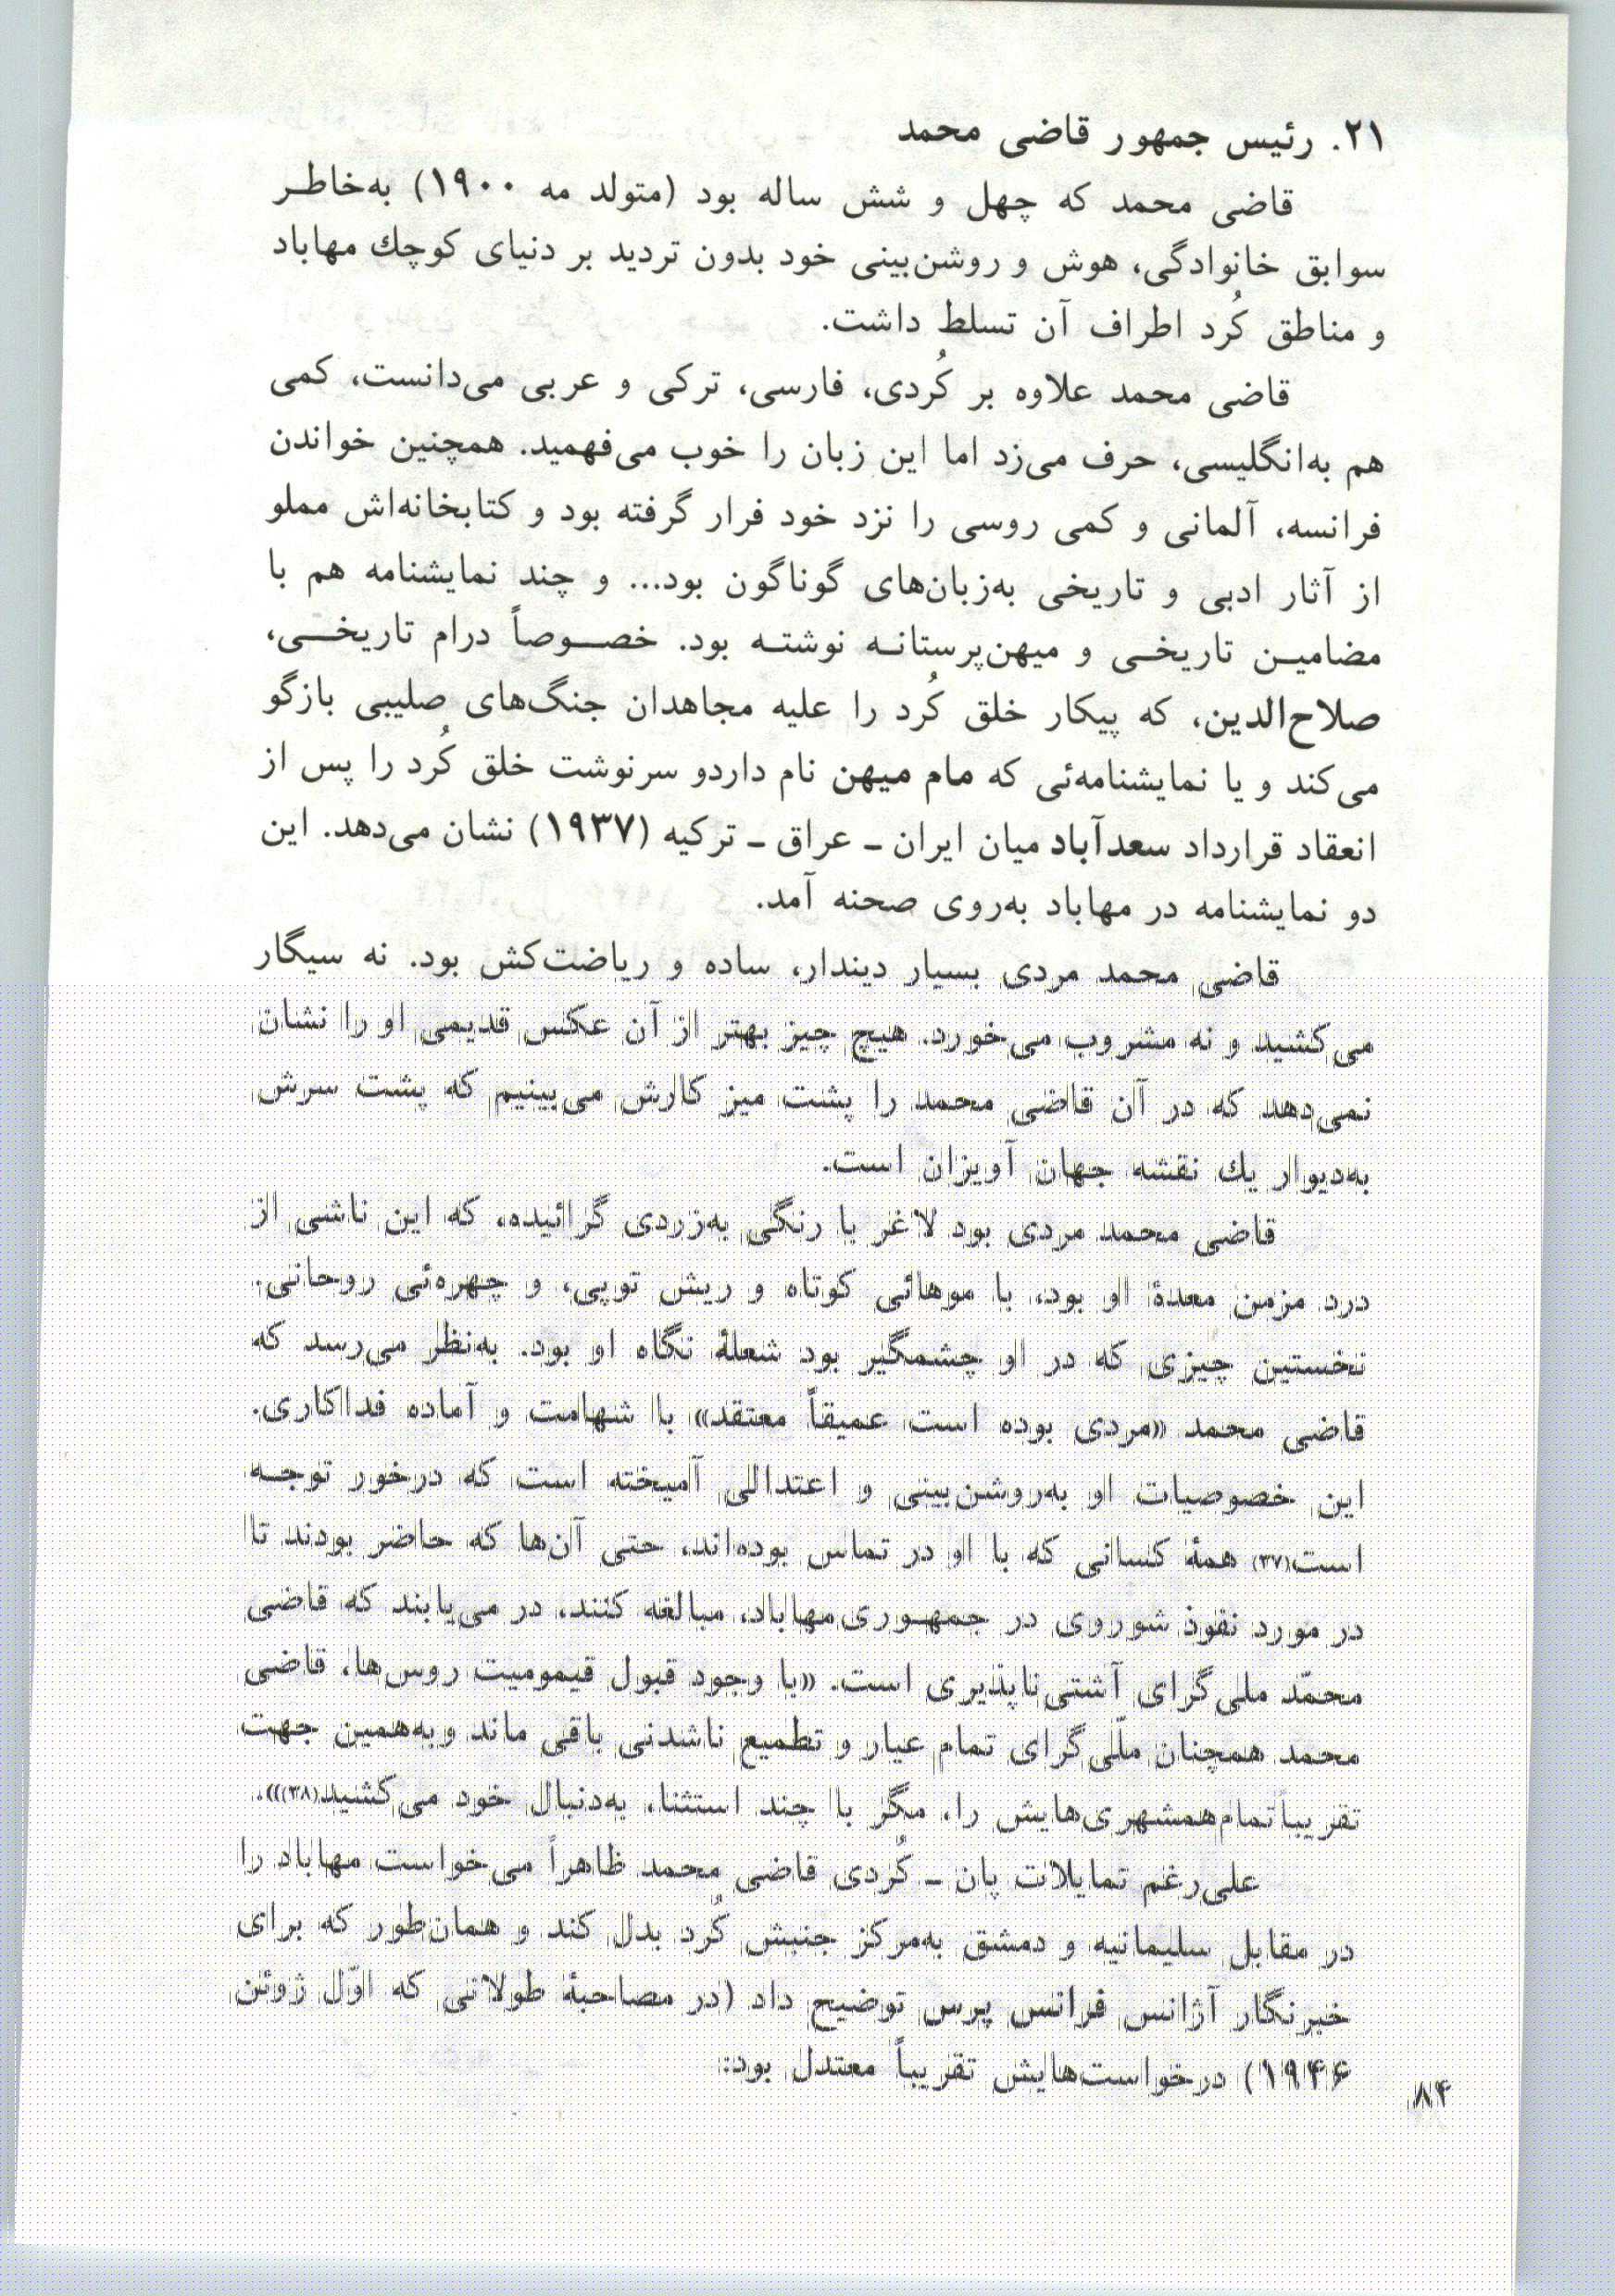 ۲۱. رئیس جمهور قاضی محمد
قاضی محمد که چهل و شش ساله بود (متولد مه ۱۹۰۰) به‌خاطر
سوابق خانوادگی، هوش و روشن‌بینی خود بدون تردید بر دنیای کوچك مهاباد
و مناطق کُرد اطراف آن تسلط داشت.
قاضی محمد علاوه بر کُردی، فارسی، ترکی و عربی می‌دانست، کمی
هم به‌انگلیسی، حرف می‌زد اما این زبان را خوب می‌فهمید. همچنین خواندن
فرانسه، آلمانی و کمی روسی را نزد خود فرار گرفته بود و کتابخانه‌اش مملو
از آثار ادبی و تاریخی به‌زبان‌های گوناگون بود... و چند نمایشنامه هم با
مضامین تاریخی و میهن‌پرستانه نوشته بود. خصوصاً درام تاریخی،
صلاح‌الدین، که پیکار خلق کُرد را علیه مجاهدان جنگ‌های صلیبی بازگو
می‌کند و یا نمایشنامه‌ئی که مام میهن نام داردو سرنوشت خلق کُرد را پس از
انعقاد قرارداد سعدآباد میان ایران ـ عراق ـ ترکیه (۱۹۳۷) نشان می‌دهد. این
دو نمایشنامه در مهاباد به‌روی صحنه آمد.
قاضی محمد مردی بسیار دیندار، ساده و ریاضت‌کش بود. نه سیگار
می‌کشید و نه مشروب می‌خورد. هیچ چیز بهتر از آن عکس قدیمی او را نشان
نمی‌دهد که در آن قاضی محمد را پشت میز کارش می‌بینیم که پشت سرش
به‌دیوار یك نقشه جهان آویزان است.
قاضی محمد مردی بود لاغر با رنگی به‌زردی گرائیده، که این ناشی از
درد مزمن معدهٔ او بود، با موهائی کوتاه و ریش توپی، و چهره‌ئی روحانی.
نخستین چیزی که در او چشمگیر بود شعلهٔ نگاه او بود. به‌نظر می‌رسد که
قاضی محمد «مردی بوده است عمیقاً معتقد» با شهامت و آماده فداکاری.
این خصوصیات او به‌روشن‌بینی و اعتدالی آمیخته است که درخور توجه
است(۳۷) همهٔ کسانی که با او در تماس بوده‌اند، حتی آن‌ها که حاضر بودند تا
در مورد نفوذ شوروی در جمهوری مهاباد، مبالغه کنند، در می‌یابند که قاضی
محمّد ملی‌گرای آشتی‌ناپذیری است. «با وجود قبول قیمومیت روس‌ها، قاضی
محمد همچنان ملّی‌گرای تمام عیار و تطمیع ناشدنی باقی ماند و به‌همین جهت
تقریباً تمام همشهری‌هایش را، مگر با چند استثنا، به‌دنبال خود می‌کشید(۳۸)».
علی‌رغم تمایلات پان ـ کُردی قاضی محمد ظاهراً می‌خواست مهاباد را
در مقابل سلیمانیه و دمشق به‌مرکز جنبش کُرد بدل کند و همان‌طور که برای
خبرنگار آژانس فرانس پرس توضیح داد (در مصاحبهٔ طولانی که اوّل ژوئن
۱۹۴۶) درخواست‌هایش تقریباً معتدل بود:
۸۴